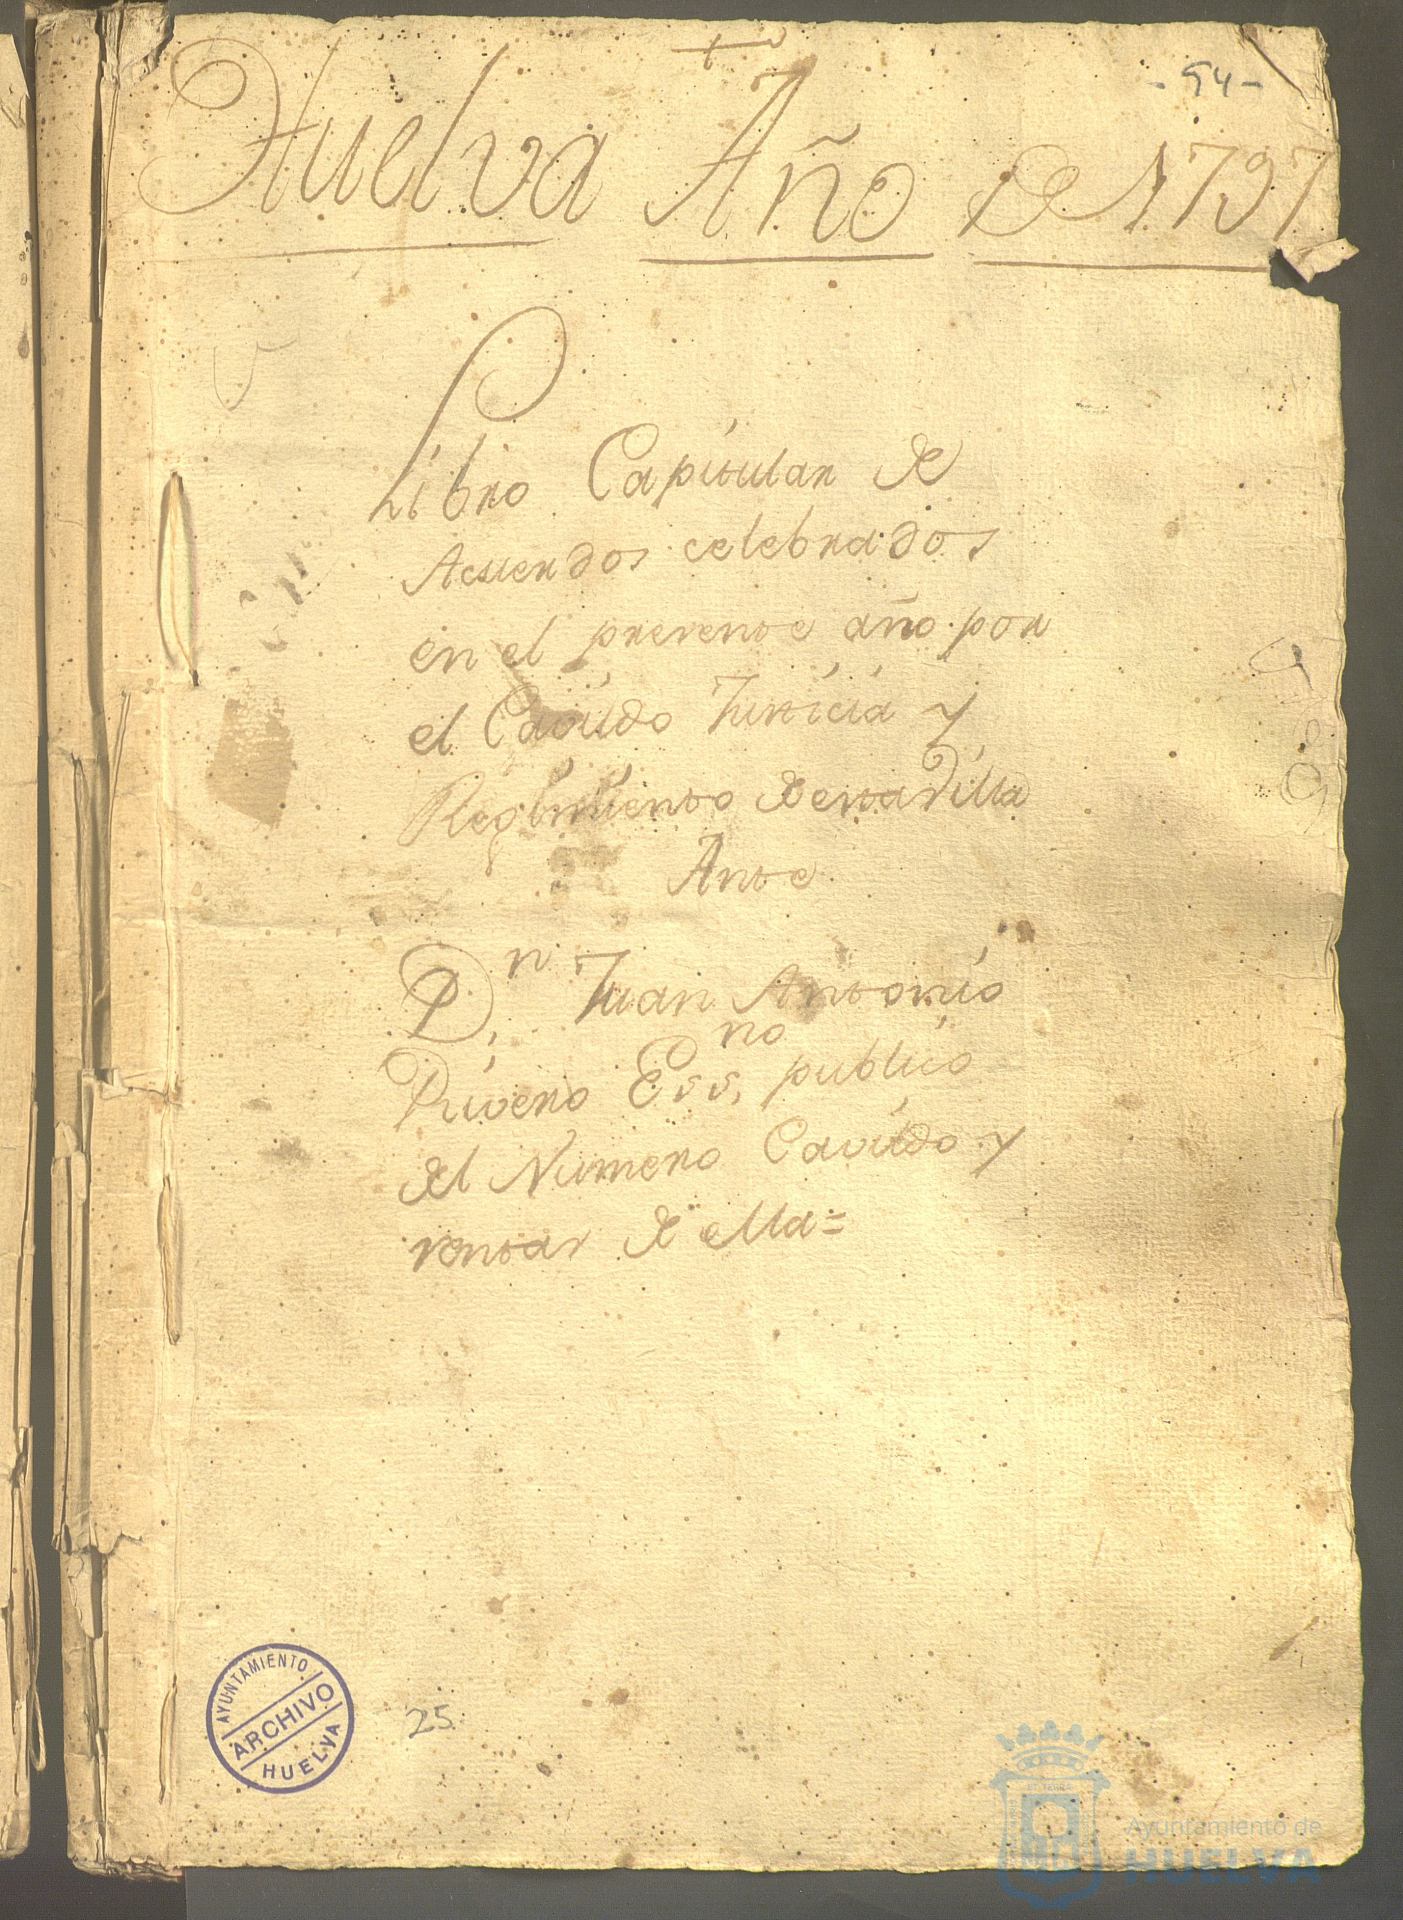 - 94 -
Huelva Año de 1797
Libro Capitular de
Acuerdos celebrados
en el presente año por
el Cavildo Justicia y
Regimiento de esta Villa
Ante
Dn. Juan Antonio
Rivero Essno. publico
del Numero Cavildo y
rentas de ella =
AYUNTAMIENTO
ARCHIVO
HUELVA
25
Ayuntamiento de
HUELVA